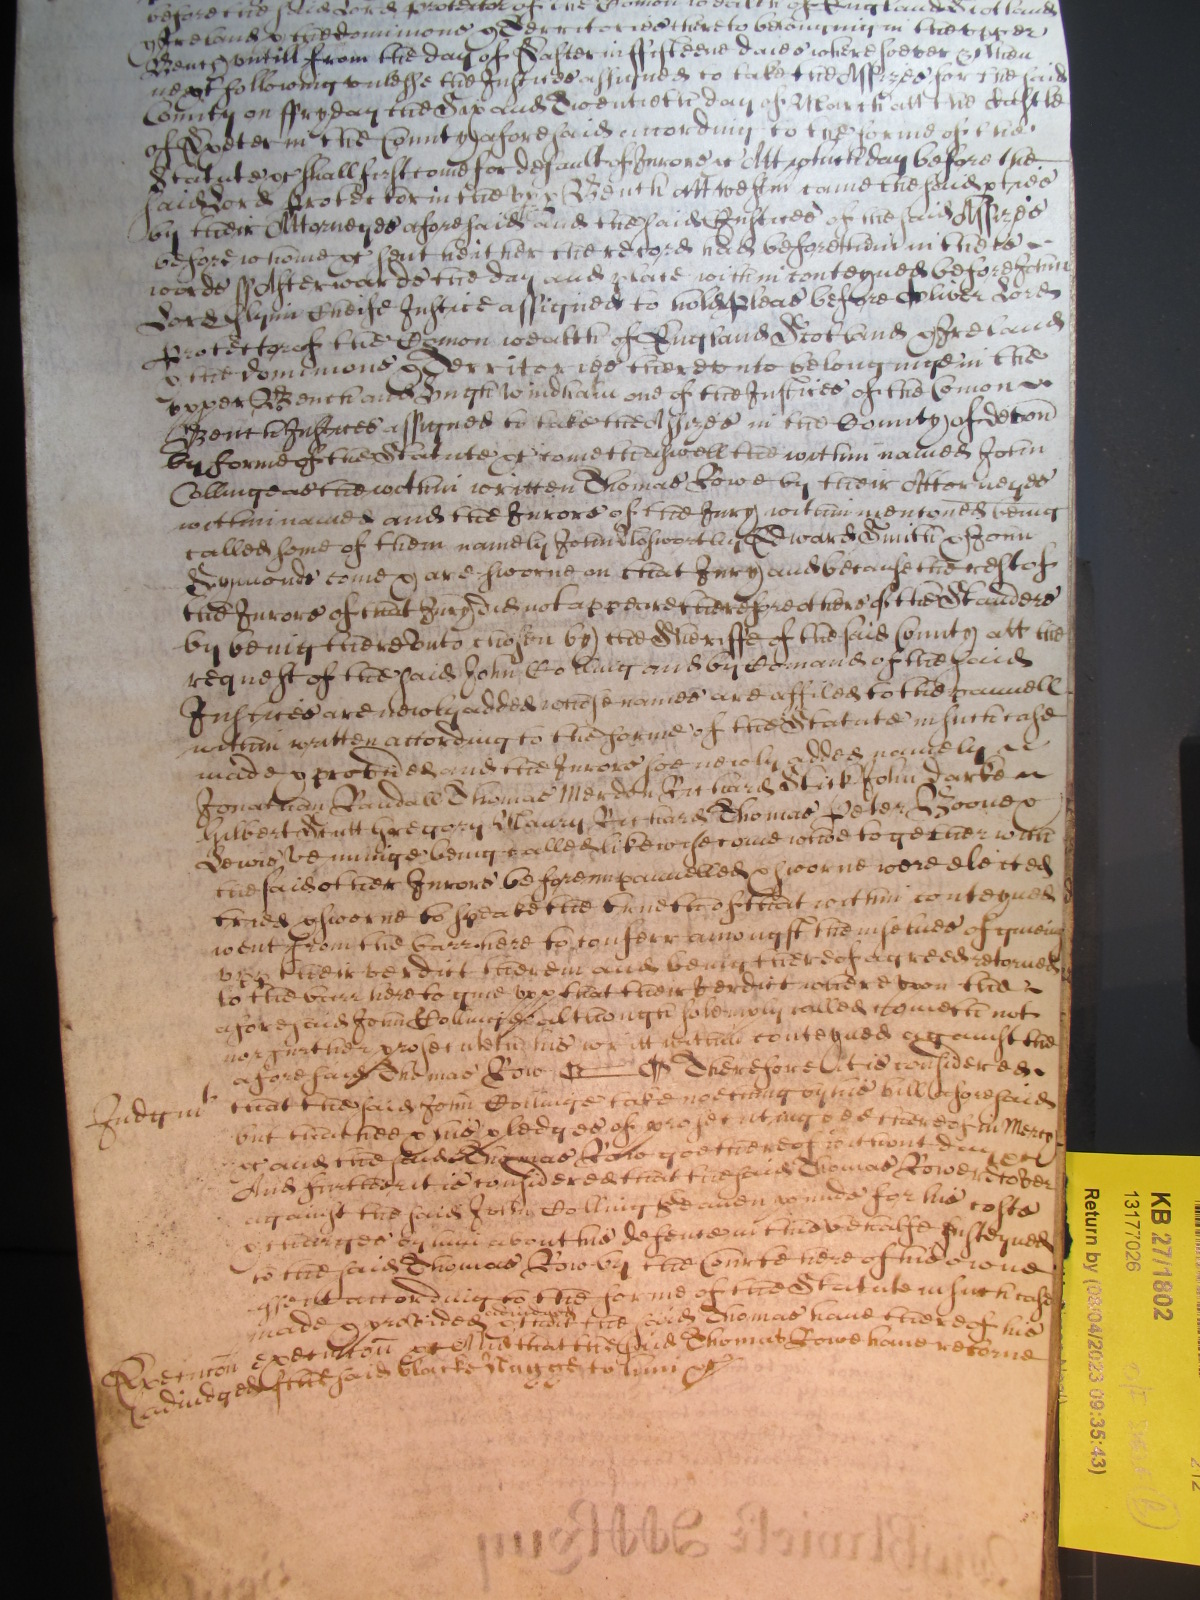 before the said Lord Protector of the Comon wealth of England Scotland
& Ireland & the dominions & Territories thereto belonging in the upper
Bench untill from the day of Easter in fifteene daies wheresoever &c then
next following unlesse the Justices assigned to take the Assizes for the said
County on ffryday the Six and Twentieth day of March att the Castle
of Exeter in the County aforesaid according to the forme of the
Statute &c shall first come for default of Jurors &c Att which day before the
said Lord Protector in the upp Bench att Westm came the said pties
by their Attorneyes aforesaid and the said Justices of the said Assizes
before whome &c sent heither the record had before them in theis
words ss Afterwards the day and place within conteyned before John
Lord Glynn Cheife Justice assigned to hold pleas before Oliver Lord
Protector of the Comon wealth of England Scotland & Ireland
& the dominions & Territories thereunto belonginge in the
upper Bench and Hugh Windham one of the Justices of the Comon
Bench Justices assigned to take the Assizes in the County of devon
by forme of the Statute &c cometh aswell the within named John
Collinge as the within written Thomas Rowe by their Attorneyes
within named and the Jurors of the Jury within mentoned being
called some of them namely John Edward Smith & John
Symonds come & are sworne on that Jury and because the rest of
the Jurors of that Jury did not appeare therefore others of the Standers
by being thereunto chosen by the Sheriffe of the said County att the
request of the said John Colling and by Comand of the said
Justices are newly added whose names are affiled to the pannell
within written according to the forme of the Statute in such case
made & provided and the Jurors soe newly added namely
Jonathan Randall Thomas Merdon Richard Stick John darke
Gilbert Scutt Gregory Maury Richard Thomas Peter Boone &
Lewis beninge being called likewise come whoe together with
the said other Jurors before impannelled & sworne were elected
tried & sworne to speake the trueth of that within conteyned
went from the barr here to conferr amongst themselves of giveing
upp their verdict therein and being thereof agreed retorned
to the barr here to give upp that their verdict whereupon the
aforesaid John Collinge although solemnly called cometh not
nor further prosecuteth his writt within conteyned against the
aforesaid Thomas Row Therefore it is considered
Judgmt that the said John Collinge take nothing by his bill aforesaid
but that hee & his pledges of prosecuting bee thereof in Mercy
&c and the said Thomas Row goe thereof without day &c
And further it is considered that the said Thomas Rowe recover
against the said John Colling Seaven pounds for his costs
& charges by him about his defence in this behalfe susteyned
to the said Thomas Row by the Courte here of his owne
assent according to the forme of the Statute in such case
made & provided adiudged & that the said Thomas have thereof his
Execution execution &c And that the said Thomas Rowe have retorne
adiudged of the said blacke Nagge to him &c
KB 27/1802
13177026
Return by (08/04/2023 09:35:43)